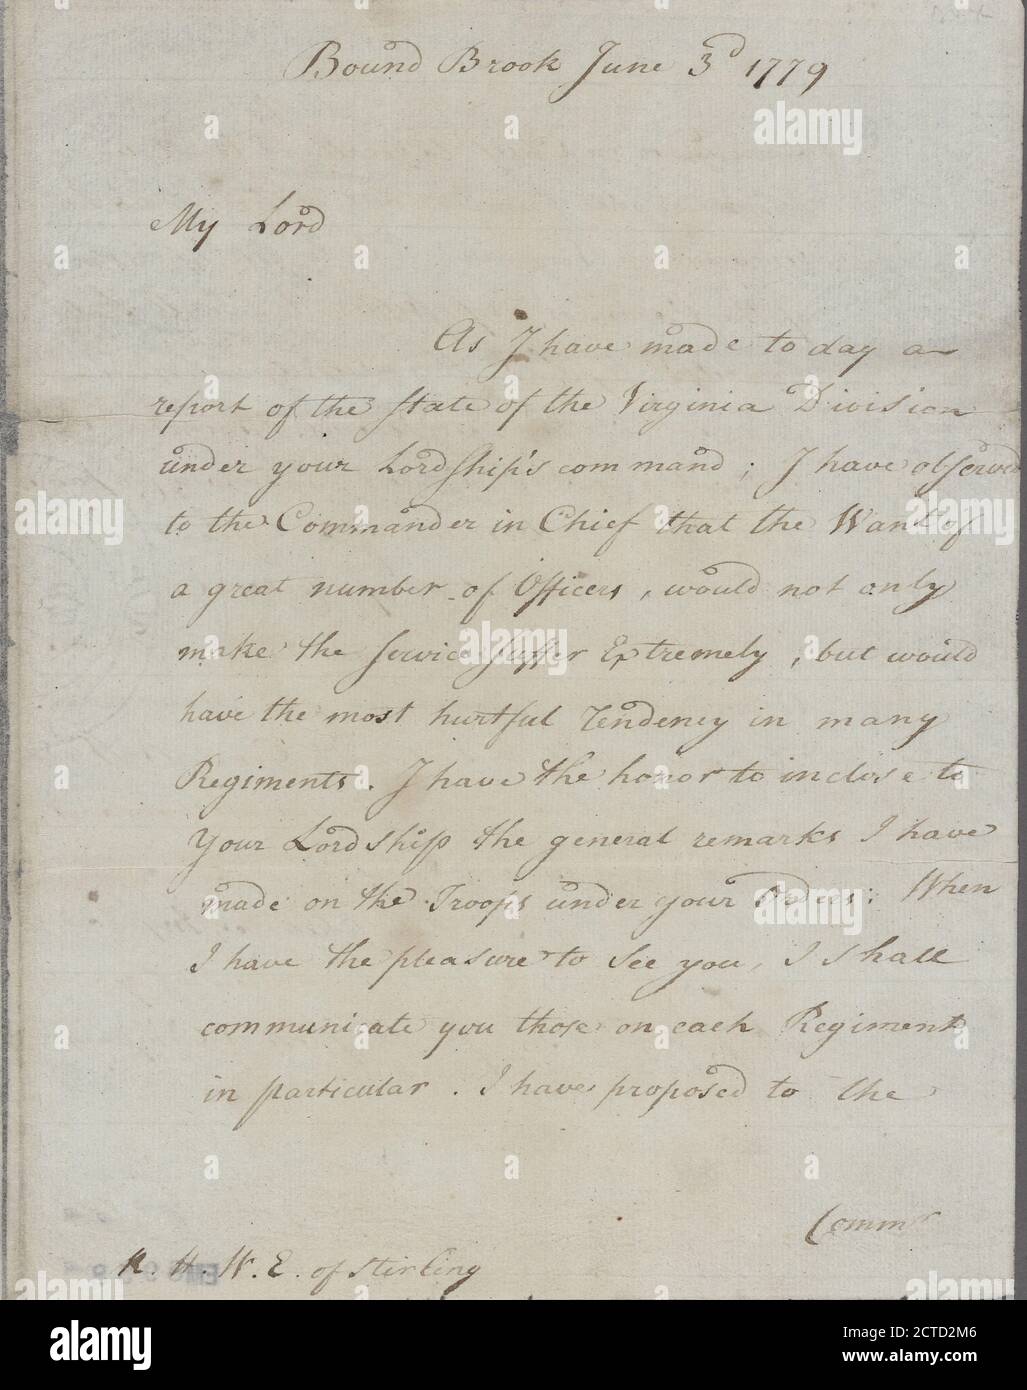 Bound Brook June 3d 1779
My Lord
As I have made to day a
report of the state of the Virginia Division
under your Lordship's command; I have observed
to the Commander in Chief that the Want of
a great number of Officers, would not only
make the service suffer Extremely, but would
have the most hurtful Tendency in many
Regiments. I have the honor to inclose to
Your Lordship the general remarks I have
made on the Troops under your Orders: When
I have the pleasure to see you, I shall
communicate you those on each Regiment
in particular. I have proposed to the
Commr
R. H. W. E. of Stirling
alamy
Image ID: 2CTD2M6
www.alamy.com